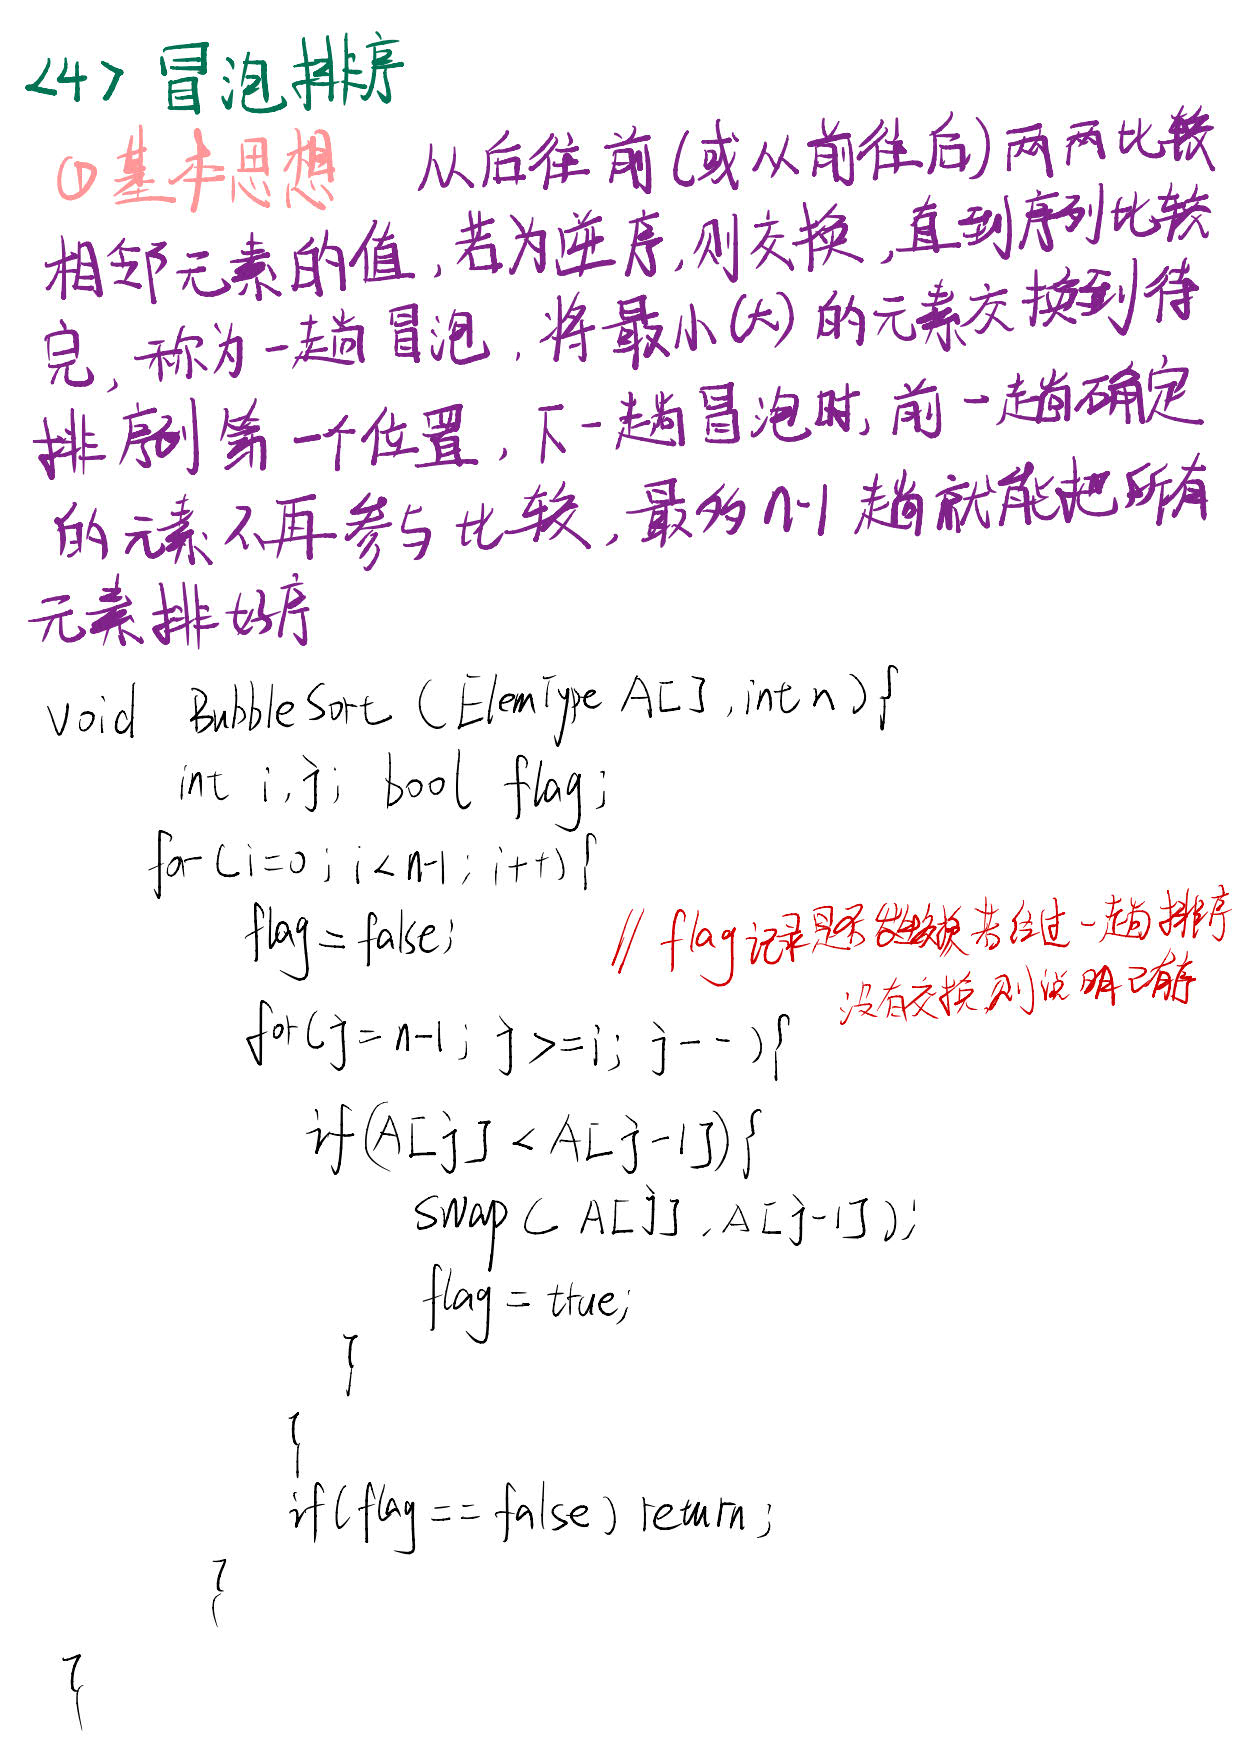 <4> 冒泡排序
① 基本思想 从后往前(或从前往后)两两比较
相邻元素的值,若为逆序,则交换,直到序列比较
完,称为一趟冒泡,将最小(大)的元素交换到待
排序列第一个位置,下一趟冒泡时,前一趟确定
的元素不再参与比较,最多n-1趟就能把所有
元素排好序
void BubbleSort (ElemType A[], int n){
int i,j; bool flag;
for(i=0; i<n-1; i++){
flag=false; // flag记录是否发生交换 若经过一趟排序
没有交换,则说明已有序
for(j=n-1; j>=i; j--){
if(A[j] < A[j-1]){
swap( A[j], A[j-1]);
flag = true;
}
}
if(flag == false) return;
}
}